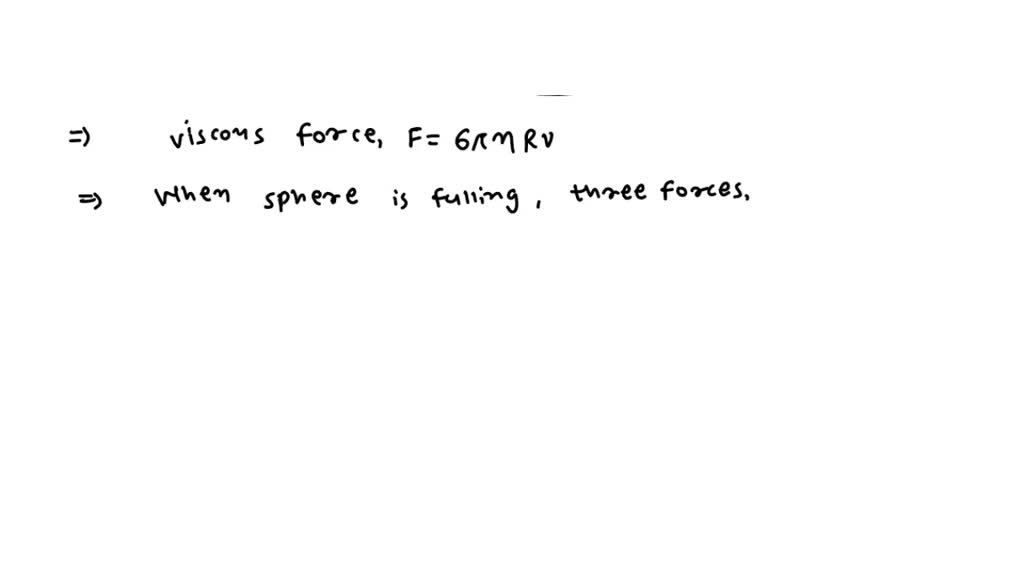 ⇒ viscous force, F = 6πηRv
⇒ When sphere is falling, three forces,